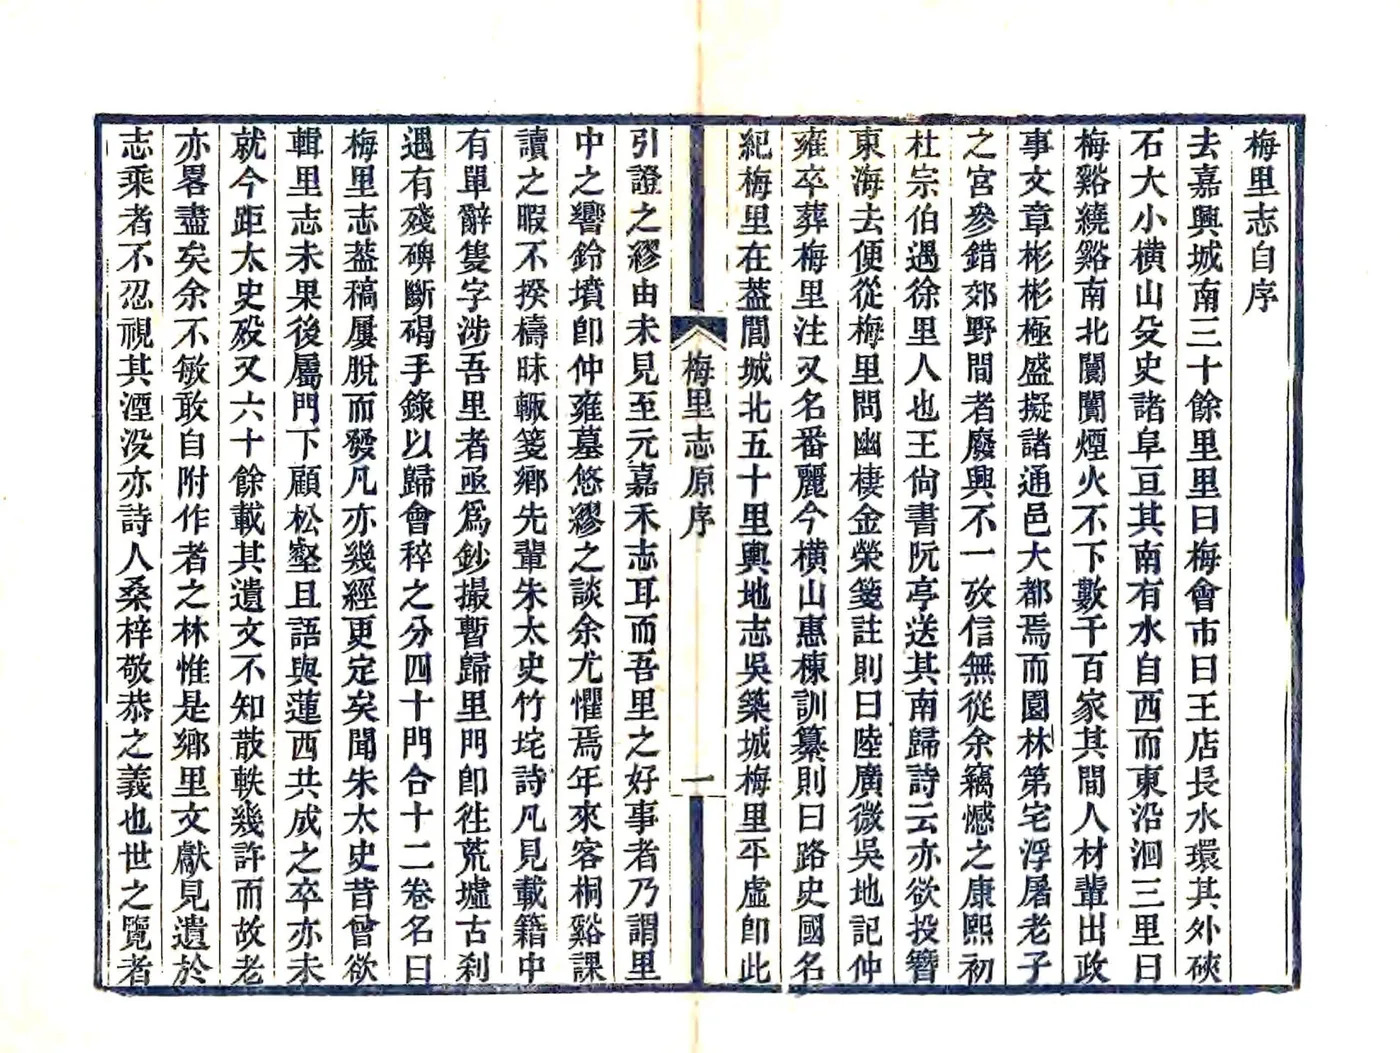 梅里志自序
去嘉興城南三十餘里里曰梅會市曰王店長水環其外硤
石大小橫山殳史諸阜亘其南有水自西而東沿洄三里曰
梅谿繞谿南北闤闠煙火不下數千百家其間人材輩出政
事文章彬彬極盛擬諸通邑大都焉而園林第宅浮屠老子
之宮參錯郊野間者廢興不一攷信無從余竊憾之康熙初
杜宗伯遇徐里人也王尙書阮亭送其南歸詩云亦欲投簪
東海去便從梅里問幽棲金榮箋註則曰陸廣微吳地記仲
雍卒葬梅里注又名番麗今橫山惠棟訓纂則曰路史國名
紀梅里在葢閭城北五十里輿地志吳築城梅里平虛卽此
梅里志原序
一
引證之繆由未見至元嘉禾志耳而吾里之好事者乃謂里
中之響鈴墳卽仲雍墓悠繆之談余尤懼焉年來客桐谿課
讀之暇不揆檮昧輙箋鄉先輩朱太史竹垞詩凡見載籍中
有單辭隻字涉吾里者亟爲鈔撮暫歸里門卽徃荒墟古刹
遇有殘碑斷碣手錄以歸會稡之分四十門合十二卷名曰
梅里志葢稿屢脫而發凡亦幾經更定矣聞朱太史昔曾欲
輯里志未果後屬門下顧松壑且語與蓮西共成之卒亦未
就今距太史殁又六十餘載其遺文不知散軼幾許而故老
亦畧盡矣余不敏敢自附作者之林惟是鄉里文獻見遺於
志乘者不忍視其湮没亦詩人桑梓敬恭之義也世之覽者